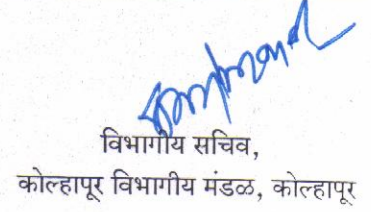 विभागीय सचिव,
कोल्हापूर विभागीय मंडळ, कोल्हापूर